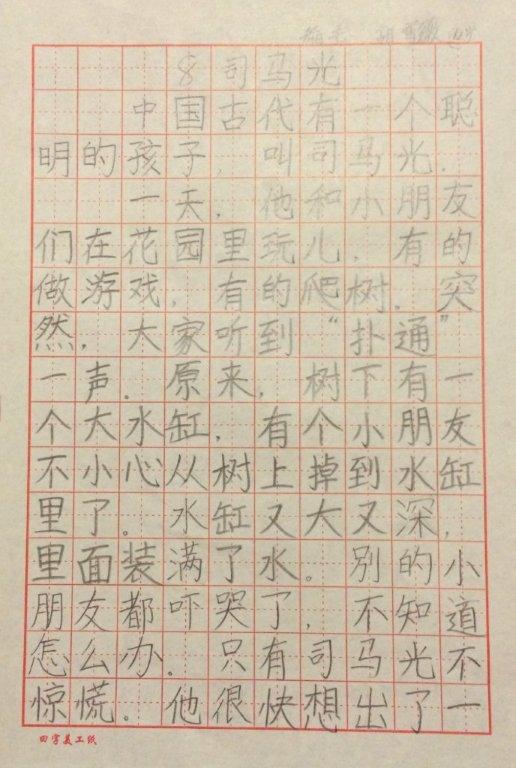 8 司马光
中国古代有一个聪
明的孩子，叫司马光．
一天．他和小朋友
们在花园里玩儿．有的
做游戏，有的爬树．突
然，大家听到“扑通”
一声．原来，树下有一
个大水缸，有个小朋友
不小心从树上掉到水缸
里了。水缸又大又深，
里面装满了水。别的小
朋友都吓哭了，不知道
怎么办．只有司马光不
惊慌．他很快想出了一
田字美工纸